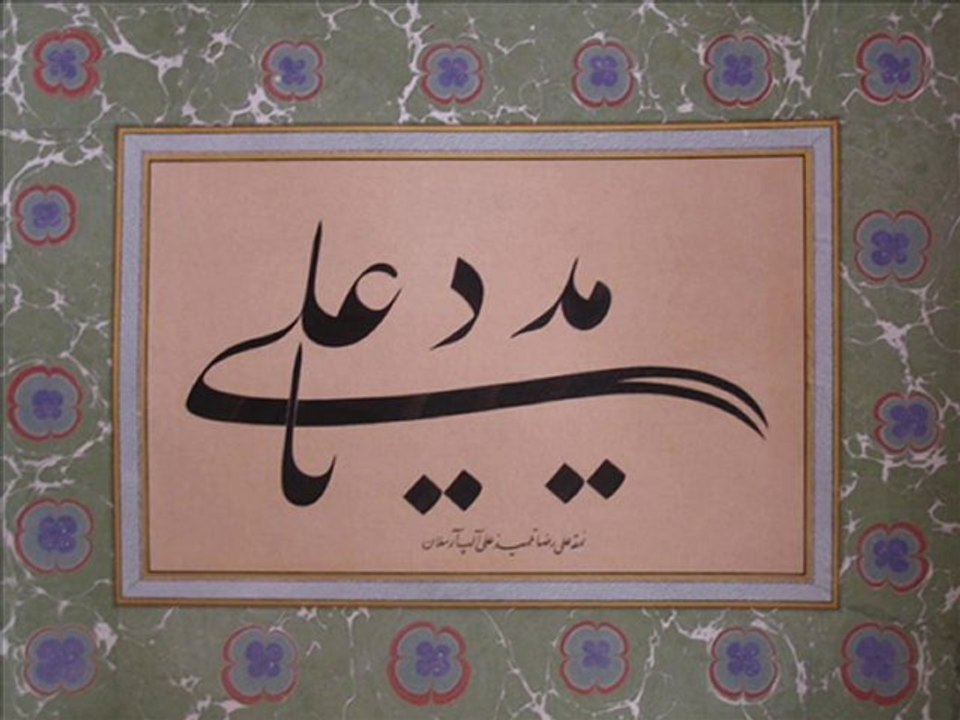 مدد یا علی
نمقه علی رضا تلمیذ علی آلپ آرسلان